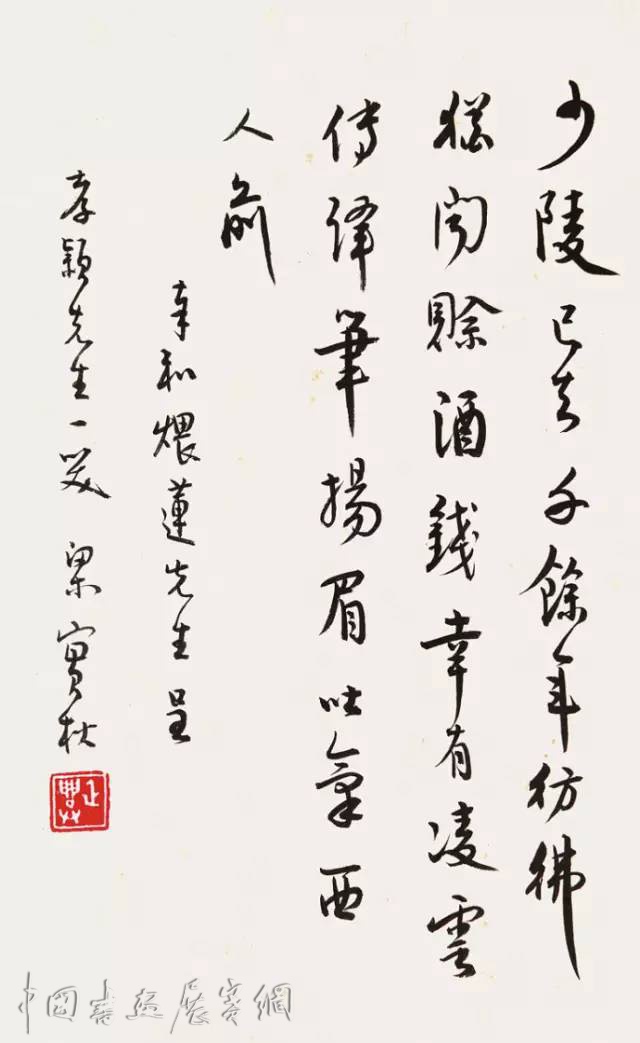 少陵已去千餘年彷彿
猶聞賒酒錢幸有凌雲
傳譯筆揚眉吐氣西
人前
奉和煨蓮先生呈
孝穎先生一笑 梁實秋
中國書畫展賽網